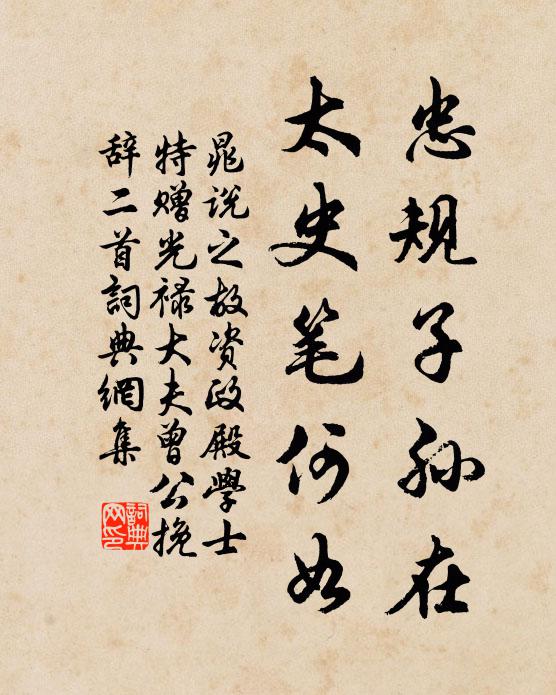 忠规子孙在
太史笔何如
晁说之故资政殿學士
特赠光禄大夫曾公挽
辞二首詞典網集
詞典
网印